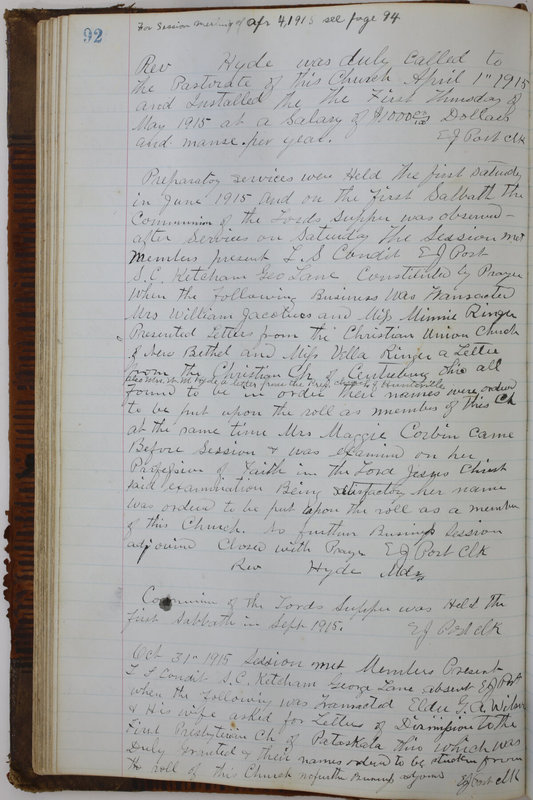 For Session Meeting of Apr 4, 1915 see page 94
92
Rev Hyde was duly called to
the Pastorate of this Church April 1st 1915
and Installed the the First Thursday of
May 1915 at a Salary of $1000 Dollars
and manse per year. E J Post Clk
Preparatory services were Held the first Saturday
in June 1915 and on the First Sabbath the
Communion of the Lords Supper was observed —
after services on Saturday the Session met
Members present L S Condit E J Post
S. C. Ketcham Geo Lane Constituted by Prayer
When the Following Business was Transacted
Mrs William Jacobs and Miss Minnie Ringer
Presented Letters from the Christian Union Church
of New Bethel and Miss Vella Ringer a Letter
from the Christian Ch. of Centerburg Ohio all
also Mrs. W. M. Hyde a letter from the Pres. church of
Found to be in order their names were ordered
to be put upon the roll as member of this Ch
at the same time Mrs Maggie Corbin Came
Before Session & was examined on her
Profession of Faith in the Lord Jesus Christ
said examination Being satisfactory her name
was ordered to be put upon the roll as a member
of this Church. No further Business Session
adjourned Closed with Prayer E J Post Clk
Rev Hyde Mdr
Communion of the Lords Supper was Held the
first Sabbath in Sept 1915. E J Post clk
Oct 31st 1915 Session met Members Present
L S Condit S. C. Ketcham George Lane absent E J Post
when the Following was Transacted Elder T. A. Wilson
& His wife asked for Letters of Dismission to the
First Presbyterian Ch of Pataskala Ohio which was
Duly Granted & their names ordered to be stricken from
the roll of this Church no further Business adjourned E J Post clk